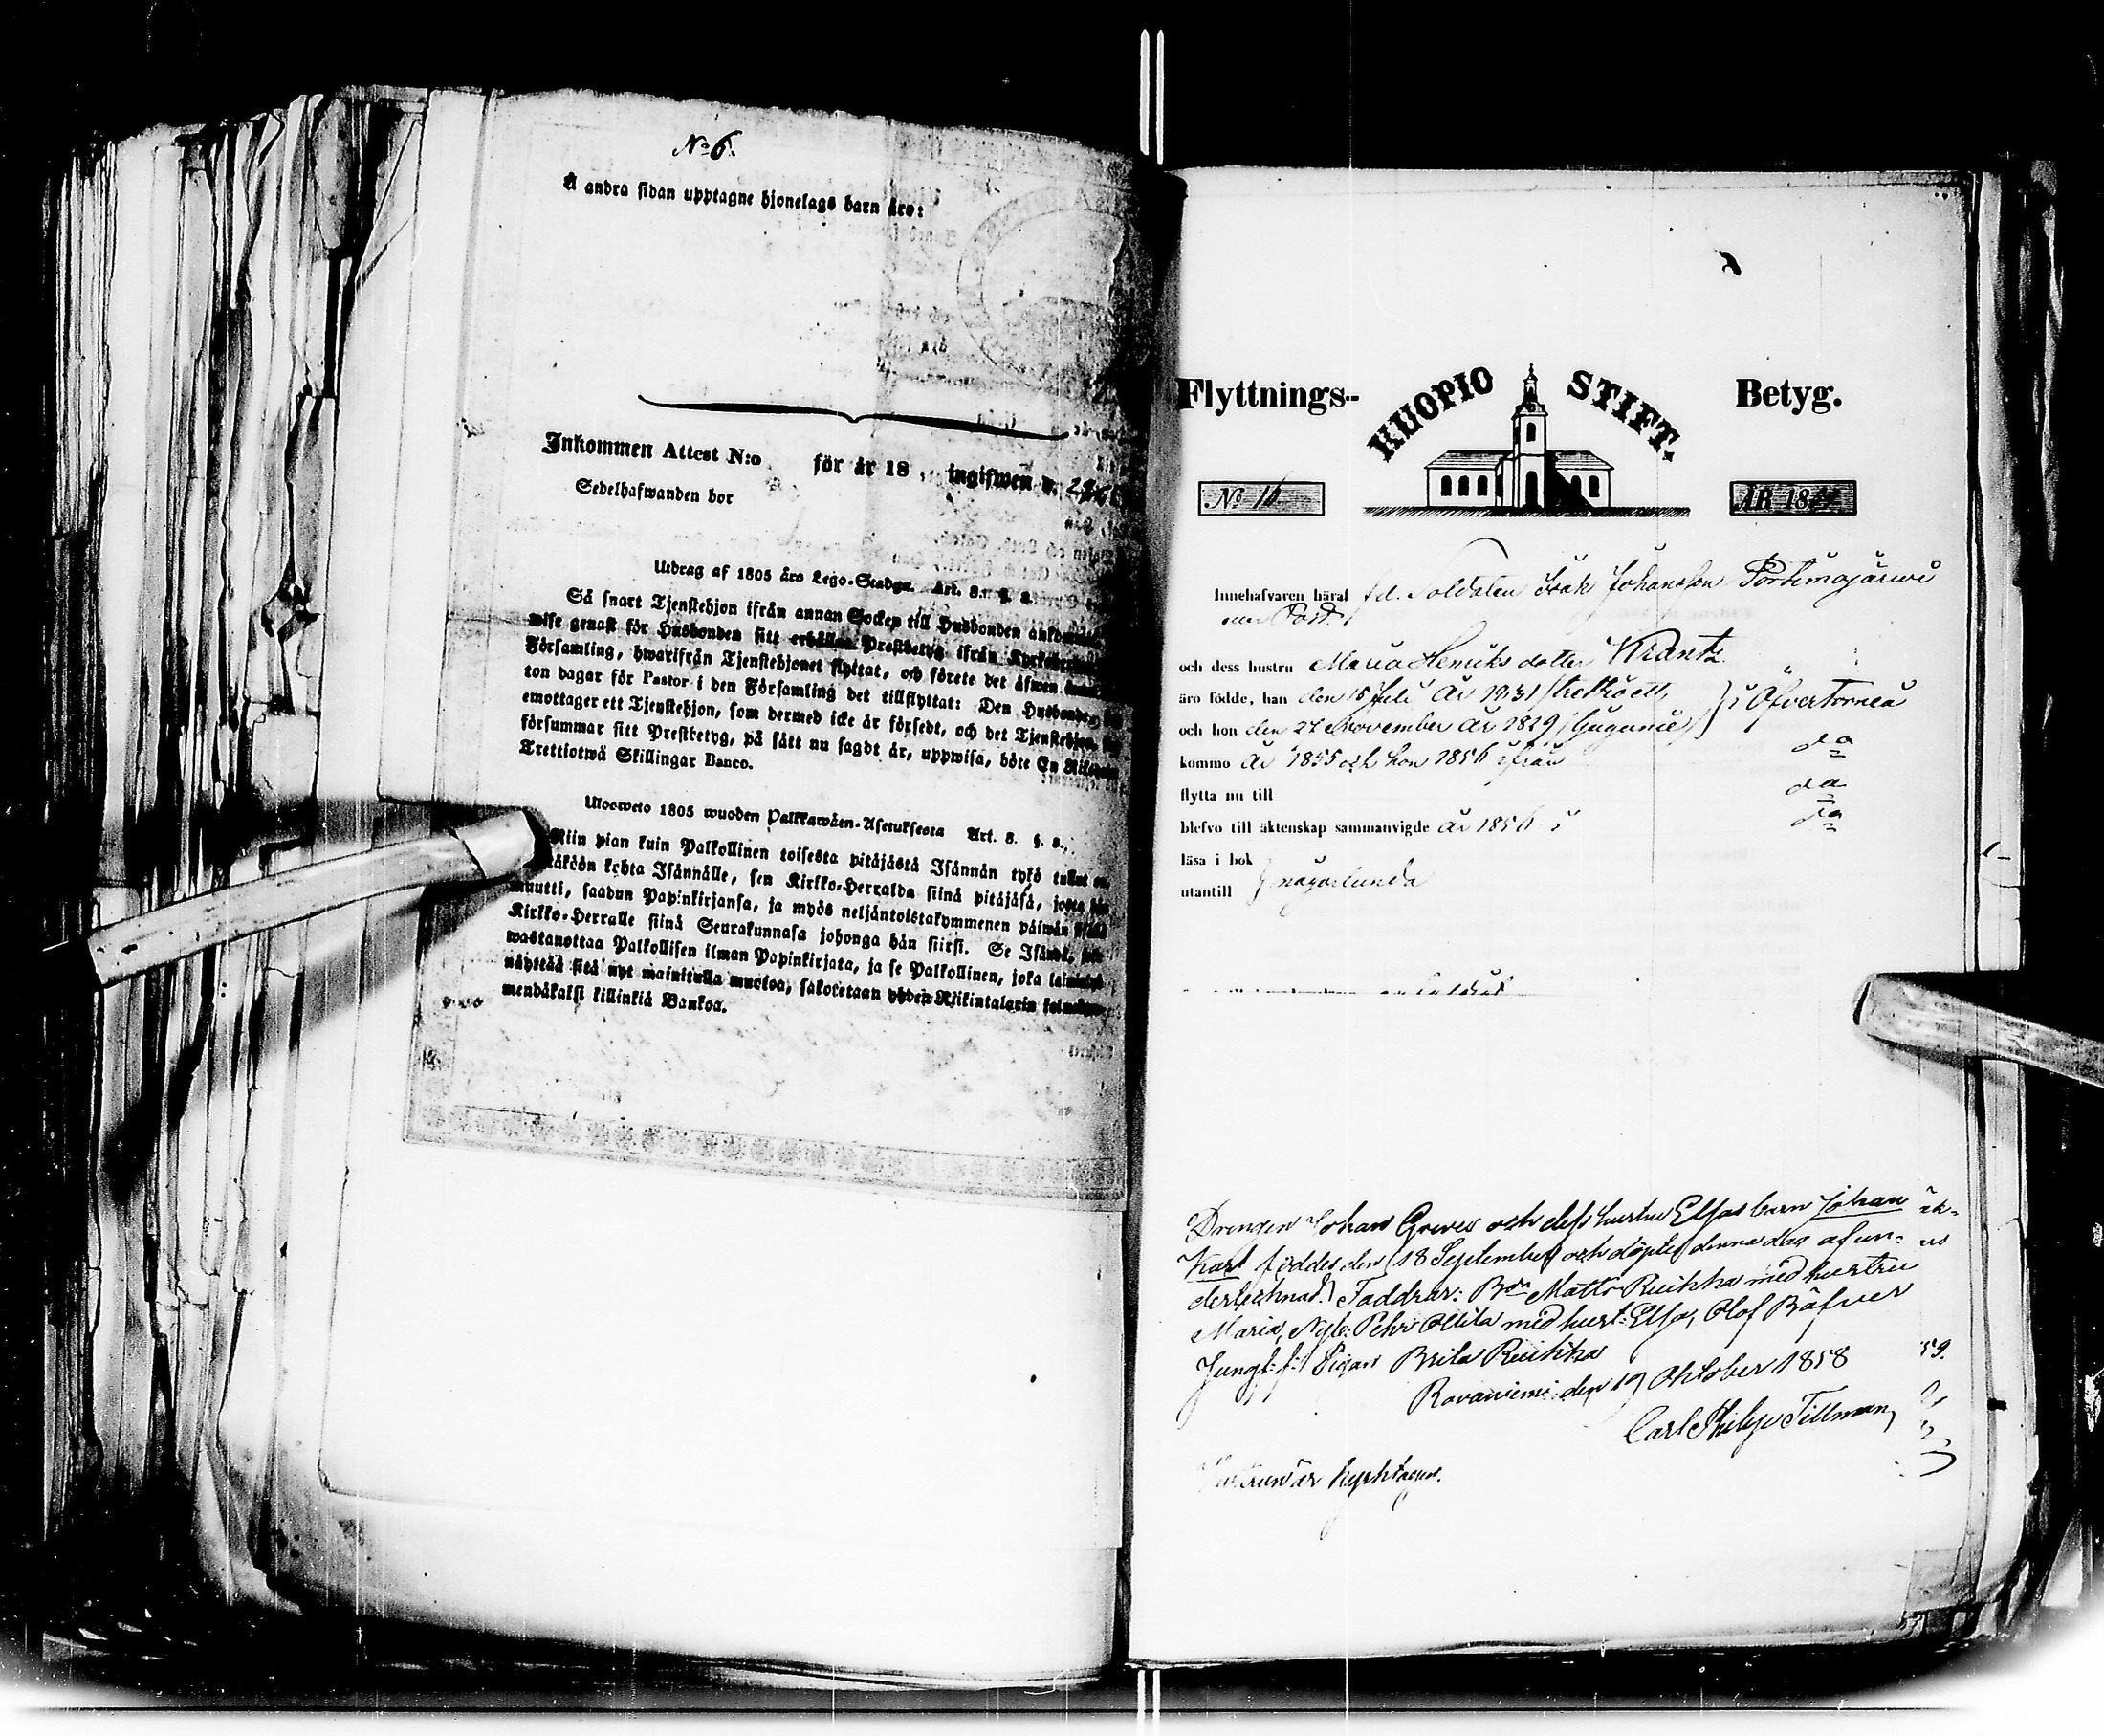 No 6.
Å andra sidan upptagne hjonelags barn äro:
Inkommen Attest N:o för år 18 ingifwen d.
Sedelhafwanden bor
Utdrag af 1805 års Lego-Stadga. Art. 8. §. 2.
Så snart Tjenstehjon ifrån annan Socken till Husbonden
wise genast för Husbonden sitt erhållna Prestbetyg ifrån
Församling, hwarifrån Tjenstehjonet flyttat, och förete det äfwen
ton dagar för Pastor i den Församling det tillflyttat: Den
emottager ett Tjenstehjon, som dermed icke är försedt, och det Tjenstehjon,
försummar sitt Prestbetyg, på sätt nu sagdt är, uppwisa, böte En
Trettiotwå Skillingar Banco.
Uloosweto 1805 wuoden Palkkawäen-Asetuksesta Art. 8. §. 2.
Niin pian kuin Palkollinen toisesta pitäjästä Isännän tykö tullut
kohta Isännälle, sen Kirkko-Herralda siinä pitäjäsä, josta
muutti, saadun Papinkirjansa, ja myös neljäntoistakymmenen päiwän
Kirkko-Herralle siinä Seurakunnasa johonga hän siirsi. Se Isändä,
wastanottaa Palkollisen ilman Papinkirjata, ja se Palkollinen, joka
näyttää sitä nyt mainitulla muotoa, sakotetaan yhden Riikintalarin
mendäkaksi killinkiä Bankoa.
Flyttnings- KUOPIO STIFT. Betyg.
No 16 ÅR 18
Innehafvaren häraf f.d. Soldaten Isak Johansson Portimojärwi
och dess hustru Maria Henriksdotter Krantz
äro födde, han den 15 Juli År 1831 /trettioett/ i Öfvertorneå
och hon den 27 November År 1829 /tjugunie/
kommo År 1855 och hon 1856 ifrån do
flytta nu till do
blefvo till äktenskap sammanvigde År 1856 i do
läsa i bok
utantill någorlunda
Drengen Johan Greves och dess hustru Elsas barn Johan
Karl föddes den 18 September och döptes denna dag af un-
dertecknad. Faddrar: Bdn Matts Ruikka med hustru
Maria, Nyb. Pehr Ollila med hust: Elsa, Olof Räfver
Jungl: f: Pigan Brita Ruikka
Rovaniemi den 19 Oktober 1858
Carl Philip Tillman
Hustrun är kyrktagen.